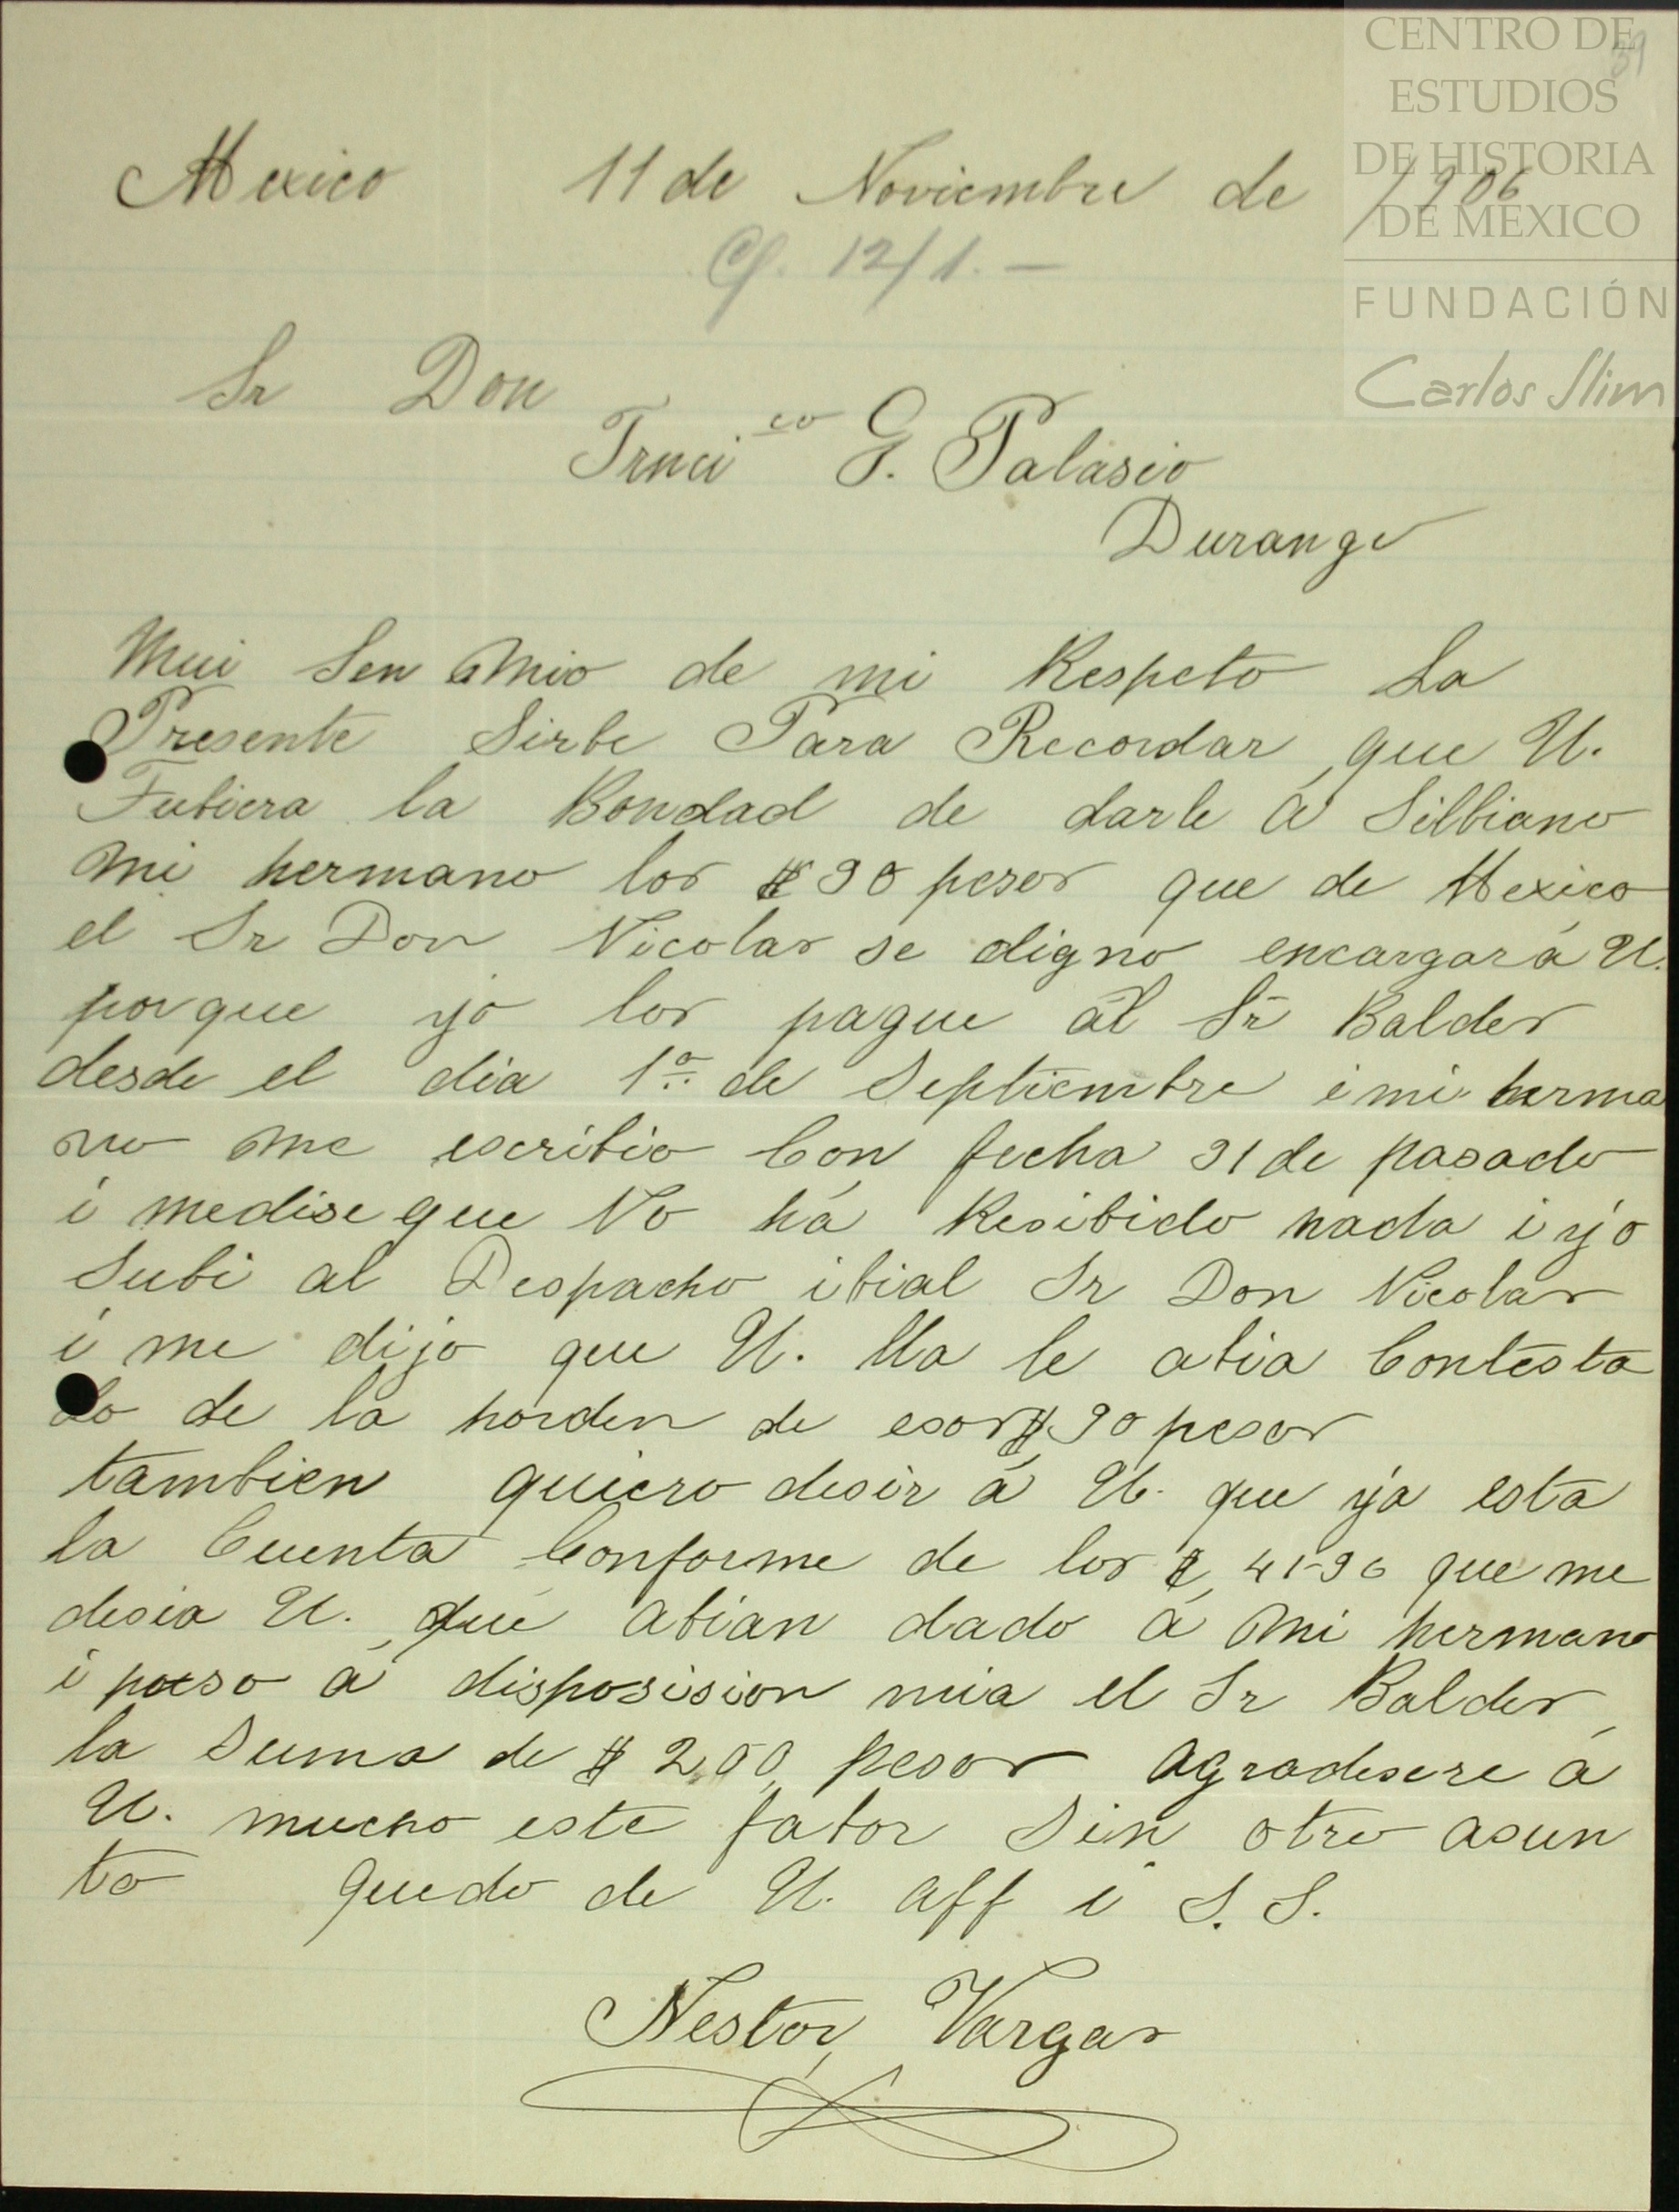 CENTRO DE
ESTUDIOS
DE HISTORIA
DE MÉXICO
FUNDACIÓN
Carlos Slim
Mexico 11 de Noviembre de 1906
12/1.—
Sr Don
Frnci<sup>co</sup> G. Palasio
Durango
Mui Sen Mio de mi Respeto La
Presente Sirbe Para Recordar que U.
Tubiera la Bondad de darle á Silbiano
mi hermano los $ 90 pesos que de Mexico
el Sr Don Nicolas se digno encargar á U.
porque yo los pague al Sr Baldes
desde el dia 1º de Septiembre i mi herma
no me escribio Con fecha 31 de pasado
i medise que No há Resibido nada i yo
Subi al Despacho ibial Sr Don Nicolas
i me dijo que U. lla le abia Contesta
do de la horden de esos $ 90 pesos
tambien quiero desir á U. que ya esta
la Cuenta Conforme de los $ 41-96 que me
desia U. que abian dado á mi hermano
i puso á disposision mia el Sr Baldes
la Suma de $ 200 pesos agradesere á
U. mucho este fabor Sin otro asun
to quedo de U. aff i S. S.
Nestor Vargas